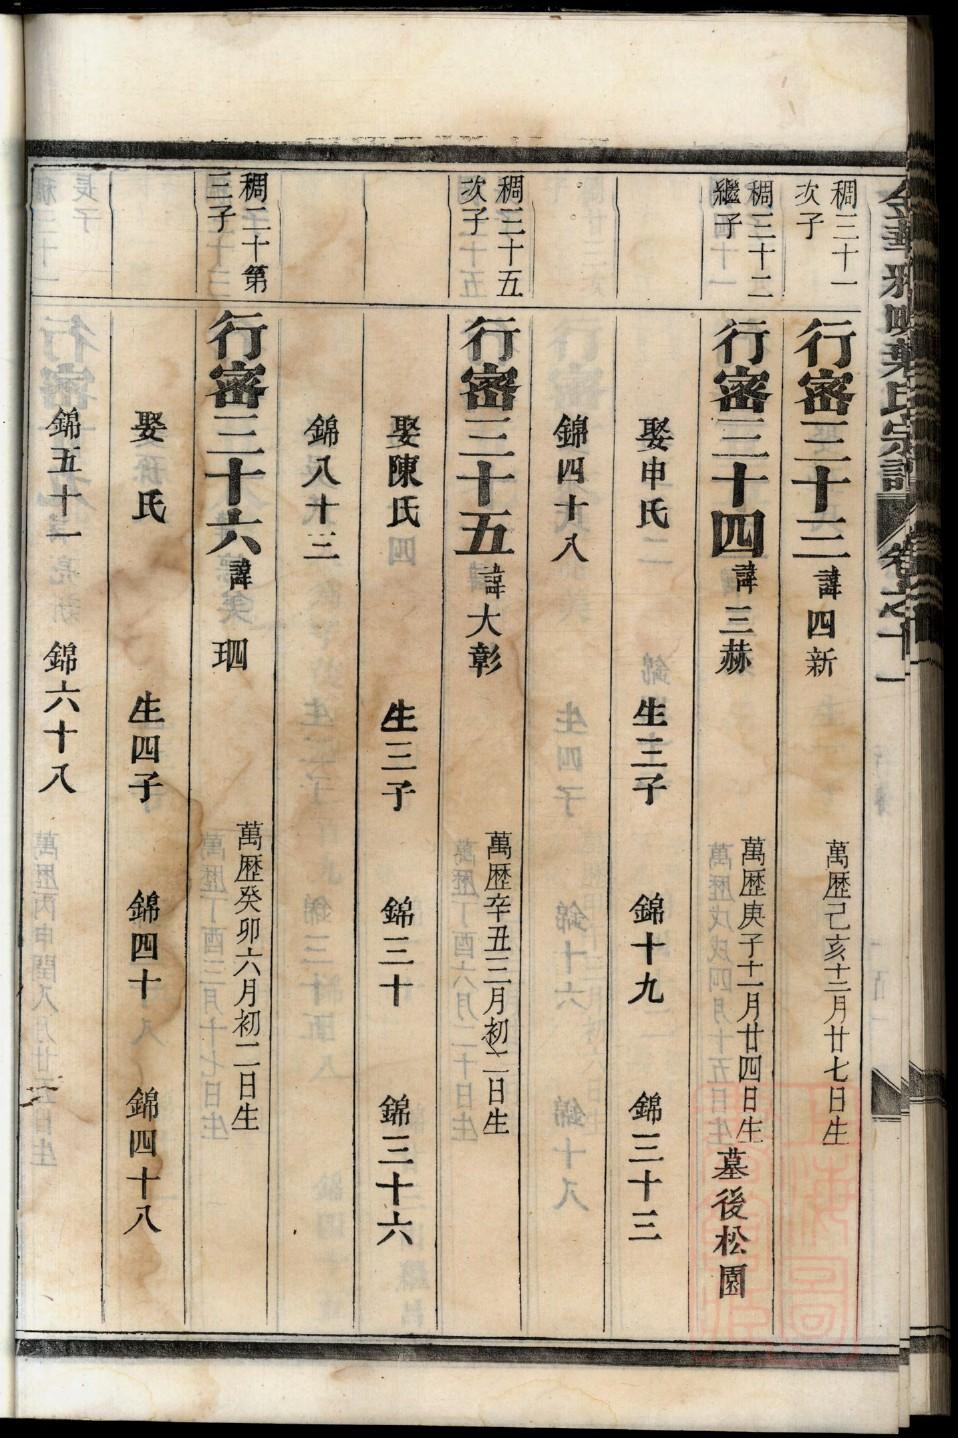 稠三十一
次子
行審三十三 諱四新 萬歴己亥十二月廿七日生
稠三十二
繼子
行審三十四 諱三赫 萬歴庚子十一月廿四日生 墓後松園
娶申氏 生三子 錦十九 錦三十三
錦四十八
稠三十五
次子
行審三十五 諱大彰 萬歴辛丑三月初二日生
娶陳氏 生三子 錦三十 錦三十六
錦八十三
稠三十第
三子
行審三十六 諱 珋 萬歴癸卯六月初二日生
娶 氏 生四子 錦四十 錦四十八
錦五十一 錦六十八